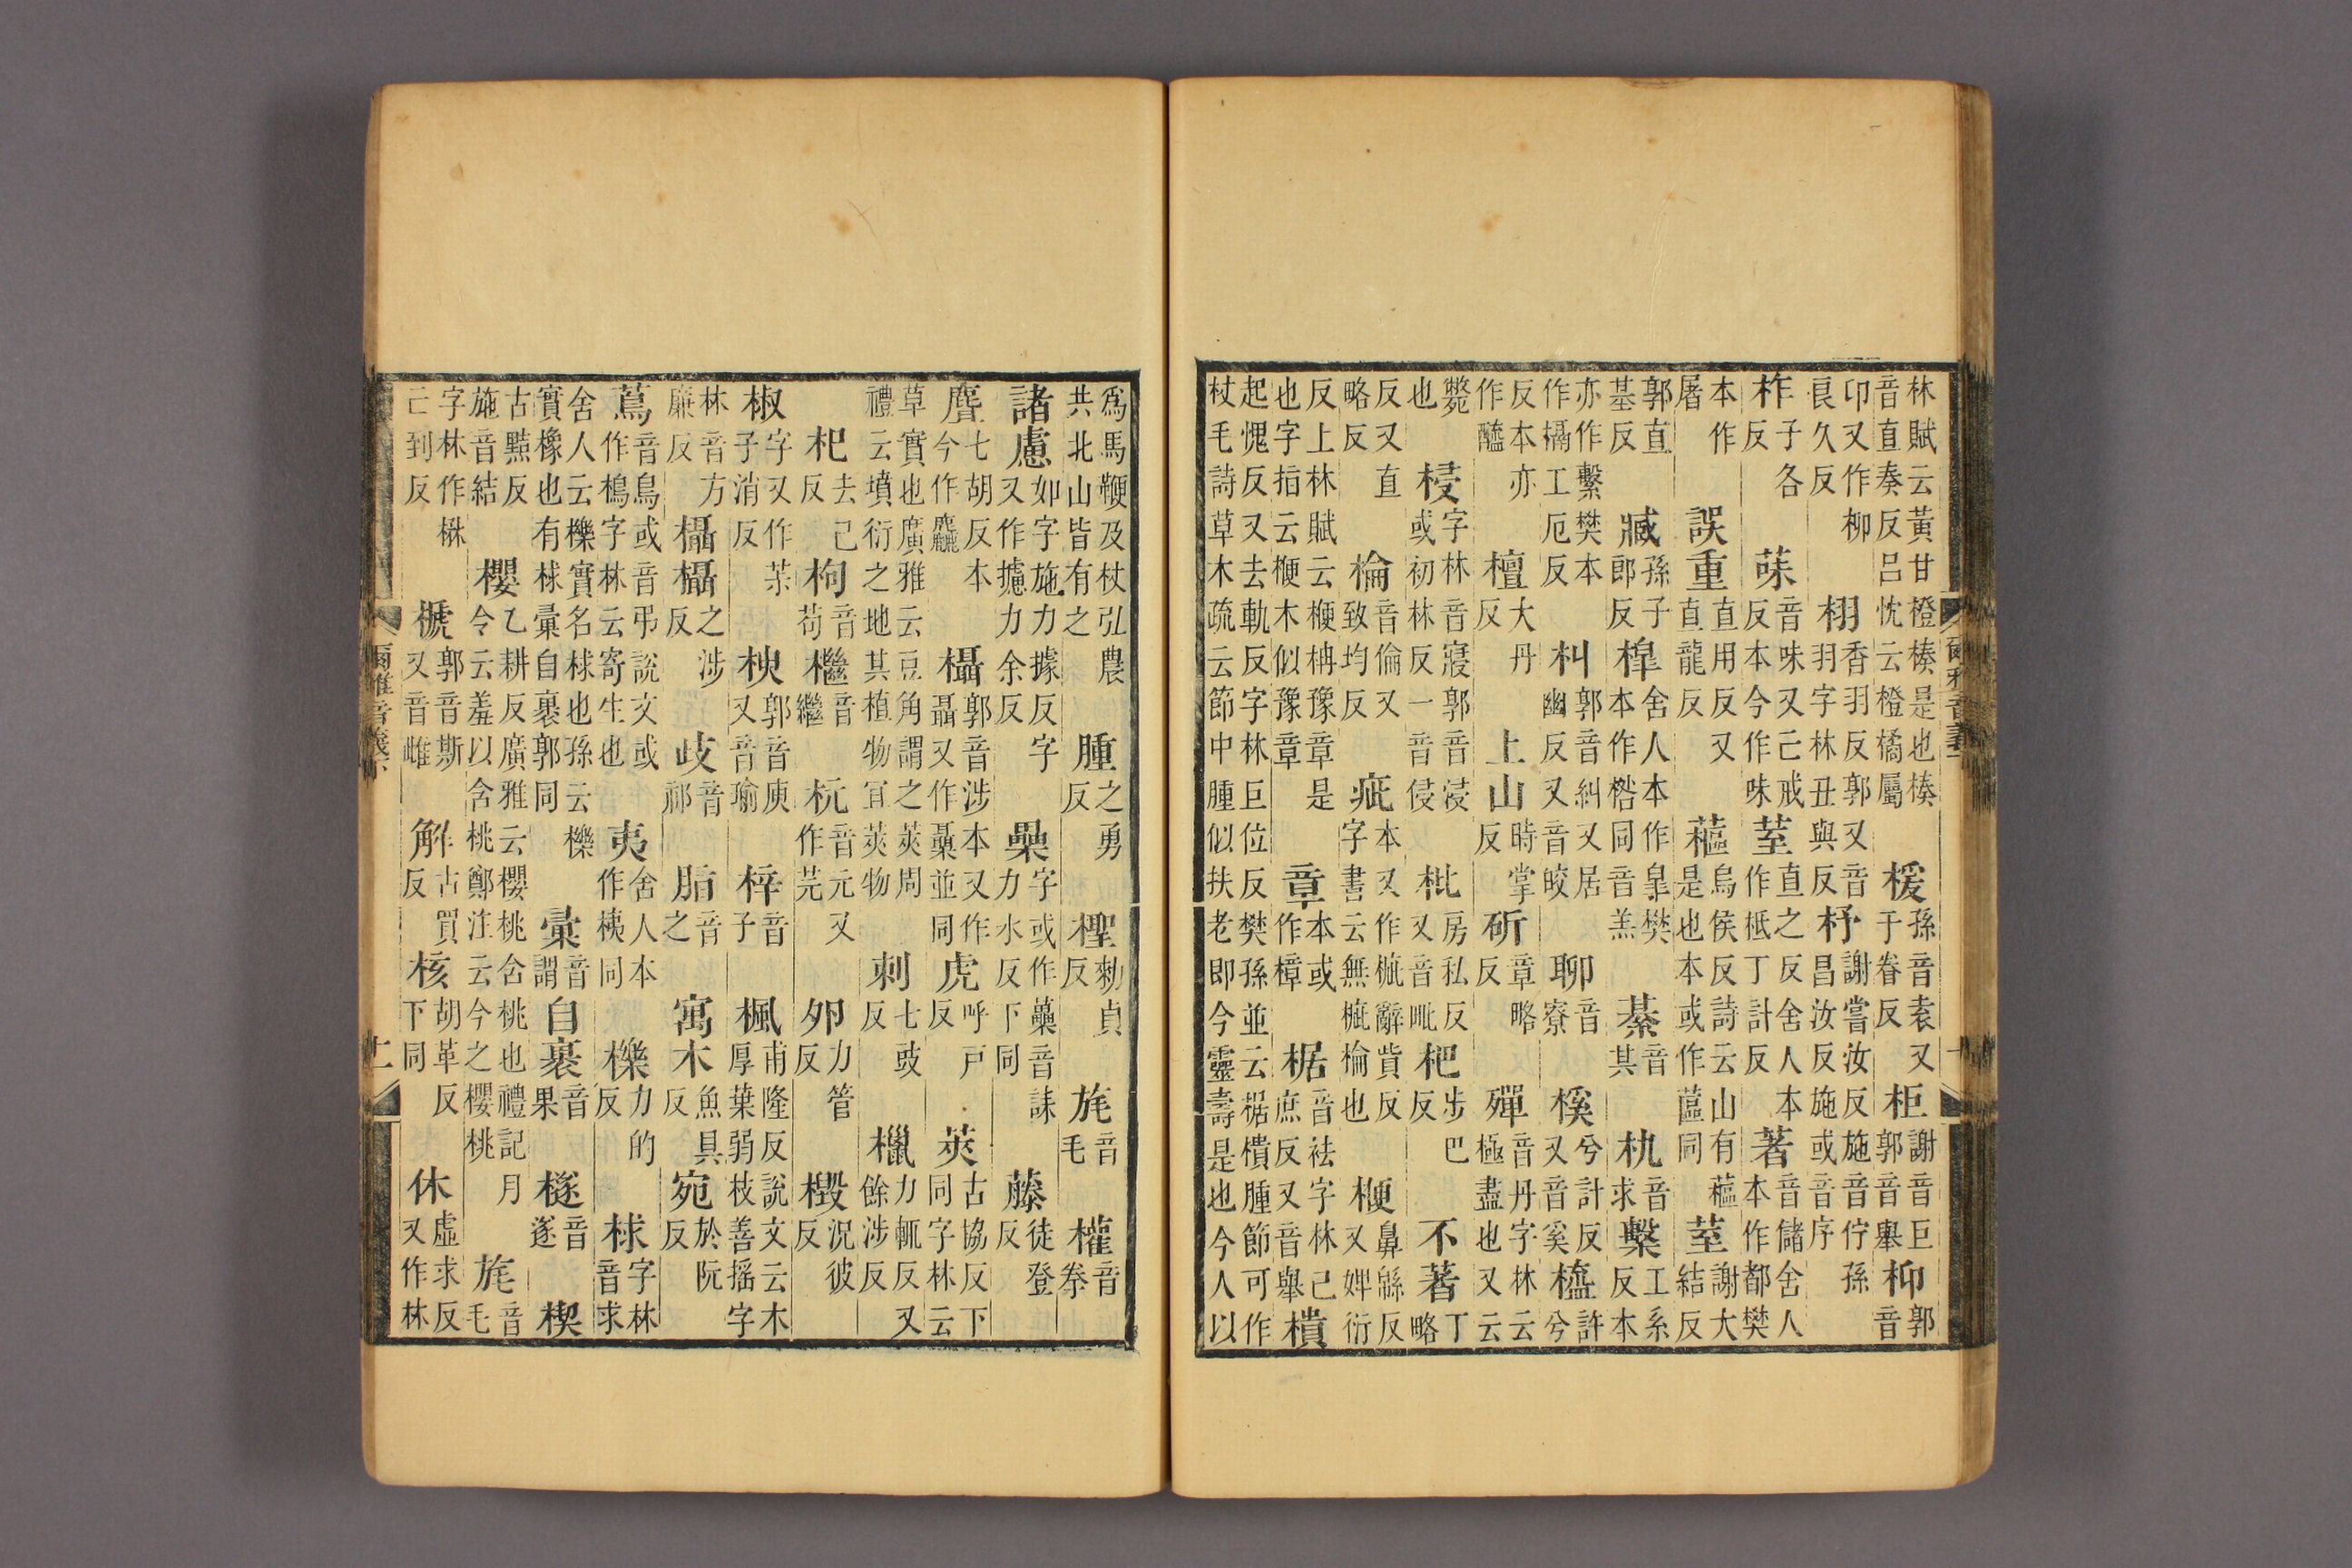 林賦云黃甘橙楱是也楱音直奏反呂忱云橙橘屬楥孫音袁又于眷反柜謝音巨郭音舉柳郭音
卬又作柳良久反栩香羽反郭又音羽字林丑與反杼謝嘗汝反施音佇孫昌汝反施或音序
柞子各反菋音味又己戒反本今作味荎直之反舍人本作柢丁計反著音儲舍人本作都樊
本作屠誤重直用反又直龍反蓲烏侯反詩云山有蓲是也本或作蓲同荎謝大結反
郭直基反臧孫子郎反槹舍人本作皐樊本作榙同音羔綦音其朹音求檕工系反本
亦作繫樊本作槅工厄反朻郭音糾又居幽反又音皎聊音寮榽兮計反又音奚橀許兮
反本亦作醯檀大丹反上山時掌反斫章略反殫音丹字林云極盡也又云
斃也梫字林音寢郭音浸或初林反一音侵枇房私反又音毗杷步巴反不著丁略
反又直略反棆音倫又致均反疵本又作㭰辭貲反字書云無㭰棆也楩鼻緜反又婢衍
反上林賦云楩柟豫章是也字指云楩木似豫章章本或作樟椐音祛字林己庶反又音舉樻
起愧反又去軌反字林巨位反樊孫並云椐樻腫節可作杖毛詩草木疏云節中腫似扶老即今靈壽是也今人以
爲馬鞭及杖弘農共北山皆有之腫之勇反檉勑貞反旄音毛權音拳
諸慮如字施力據反字又作攄力余反櫐字或作虆音誄力水反下同藤徒登反
麆七胡反本今作麤欇郭音涉本又作聶又作櫜並同虎呼戶反莢古協反下同字林云
草實也廣雅云豆角謂之莢周禮云墳衍之地其植物宜莢物刺七豉反㯿力輒反又餘涉反
杞去己反枸音苟檵音繼杬音元又作芫夘力管反檓況彼反
椒字又作茮子消反楰郭音庾又音瑜梓音子楓甫隆反說文云木厚葉弱枝善搖字
林音方廉反欇欇之涉反歧音祁脂音之寓木魚具反宛於阮反
蔦音鳥或音弔說文或作樢字林云寄生也夷舍人本作桋同櫟力的反梂字林音求
舍人云櫟實名梂也孫云櫟實橡也有梂彙自裹郭同彙音謂自裹音果檖音遂楔
古黠反施音結櫻乙耕反廣雅云櫻桃含桃也禮記月令云羞以含桃鄭注云今之櫻桃旄音毛
字林作楙亡到反榹郭音斯又音雌解古買反核胡革反下同休虛求反又作林
爾雅音義下
十二